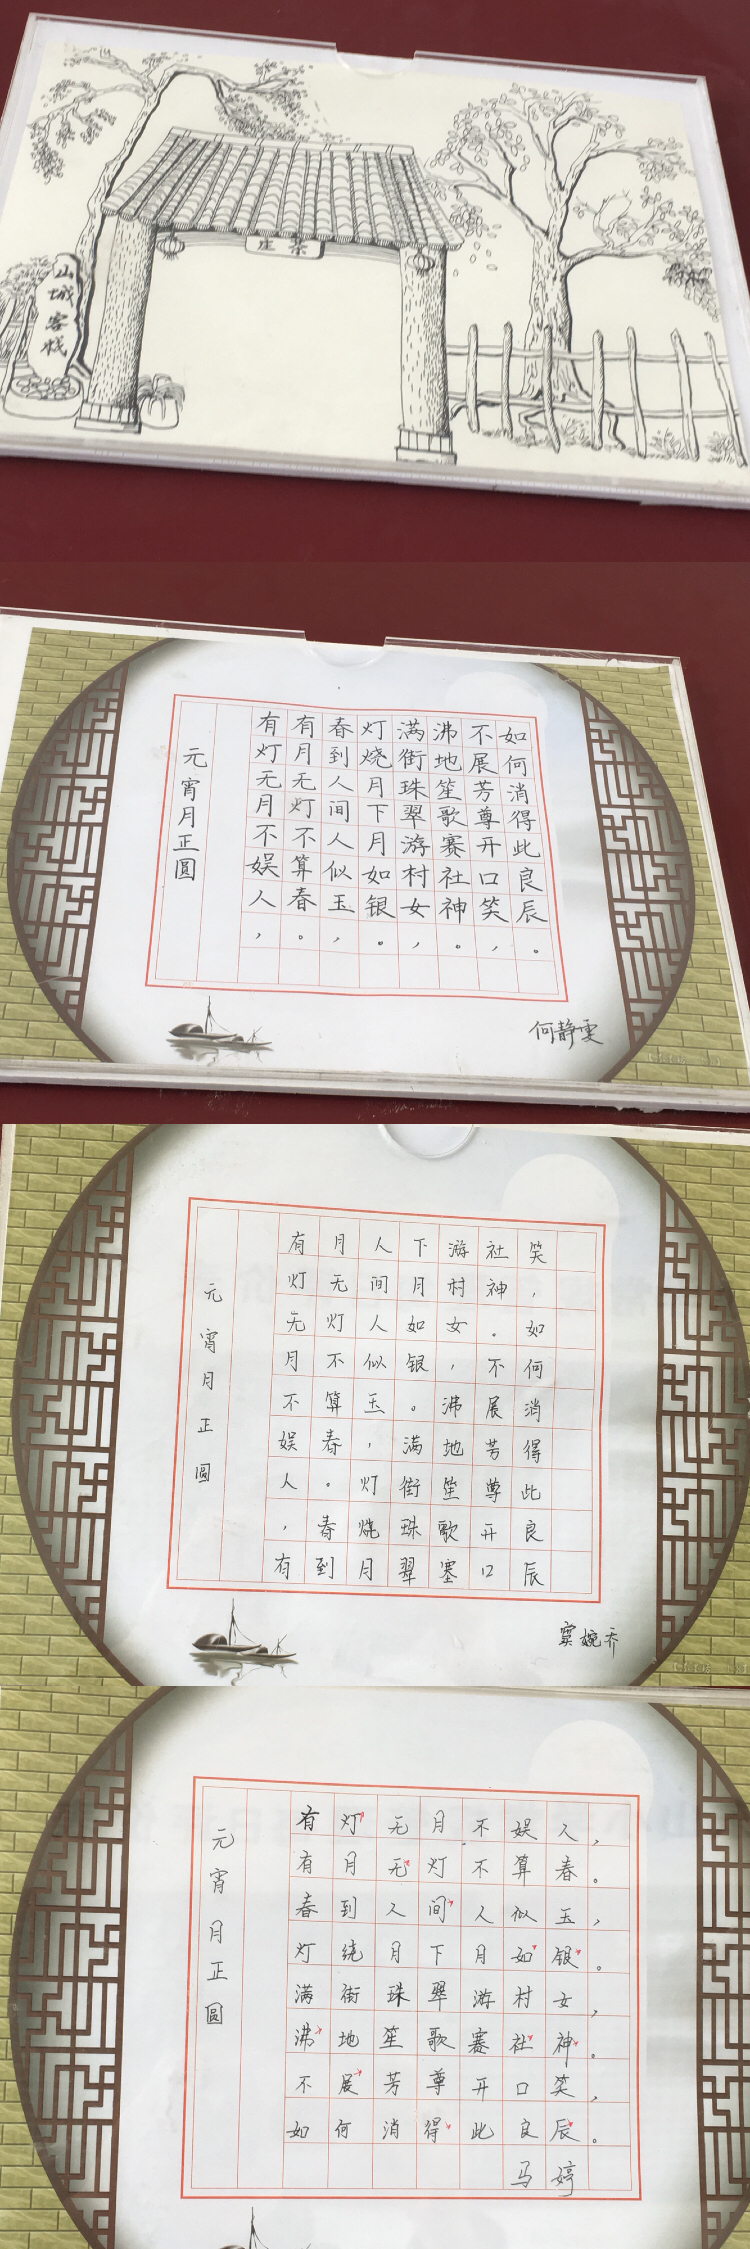 山城客栈
茶庄
元宵月正圓
有灯无月不娱人，
有月无灯不算春。
春到人间人似玉，
灯烧月下月如银。
满街珠翠游村女，
沸地笙歌赛社神。
不展芳尊开口笑，
如何消得此良辰。
何静雯
元宵月正圆
有灯无月不娱人，有
月无灯不算春。春到
人间人似玉，灯烧月
下月如银。满街珠翠
游村女，沸地笙歌塞
社神。不展芳尊开口
笑，如何消得此良辰
窦婉乔
元宵月正圆
有灯无月不娱人，
有月无灯不算春。
春到人间人似玉，
灯绕月下月如银。
满街珠翠游村女，
沸地笙歌赛社神。
不展芳尊开口笑，
如何消得此良辰。
马婷